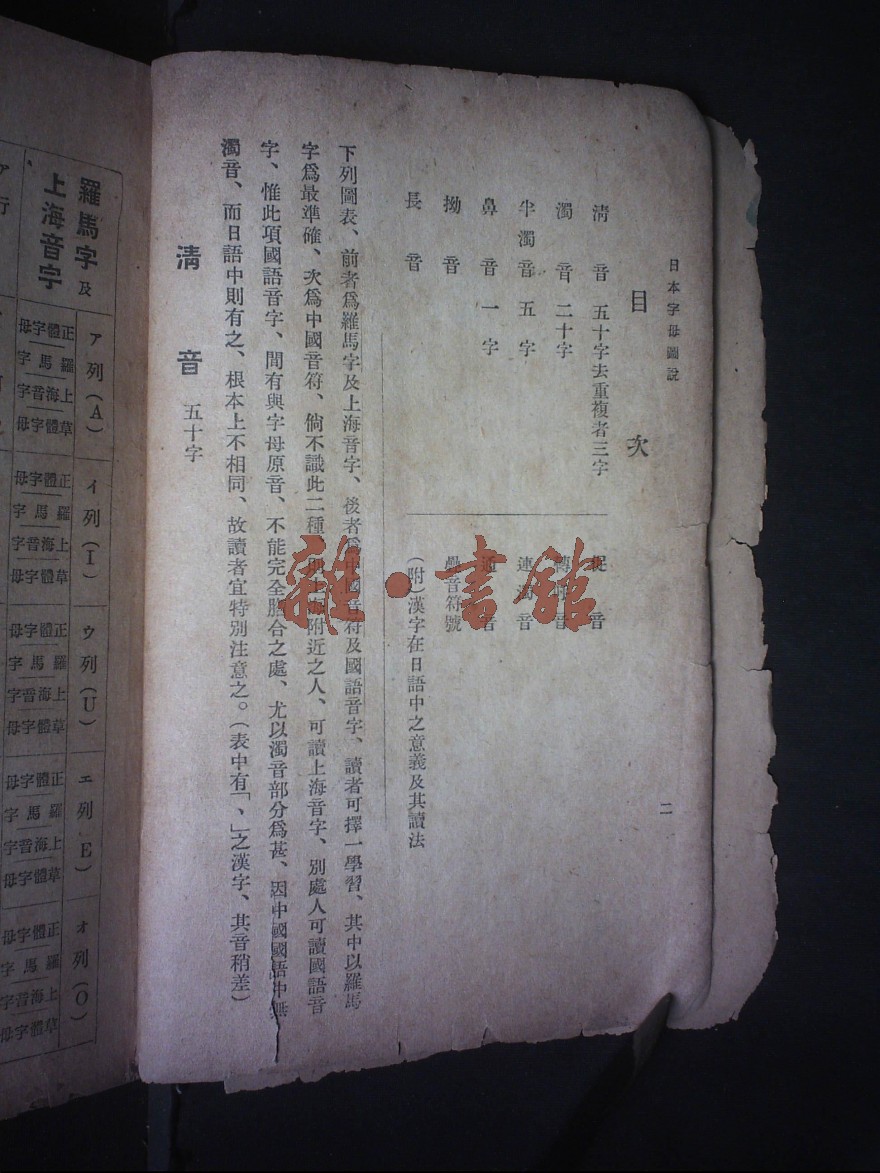 日本字母圖說
二
目次
清音 五十字去重複者三字
濁音 二十字
半濁音 五字
鼻音 一字
拗音
長音
促音
轉呼音
連濁音
通音
疊音符號
(附)漢字在日語中之意義及其讀法
下列圖表、前者爲羅馬字及上海音字、後者爲中國音符及國語音字、讀者可擇一學習、其中以羅馬
字爲最準確、次爲中國音符、倘不識此二種、則上海附近之人、可讀上海音字、別處人可讀國語音
字、惟此項國語音字、間有與字母原音、不能完全脗合之處、尤以濁音部分爲甚、因中國國語中無
濁音、而日語中則有之、根本上不相同、故讀者宜特別注意之。(表中有「、」之漢字、其音稍差)
清音 五十字
羅馬字及
上海音字
ア列(A)
正體字母
羅馬字
上海音字
草體字母
イ列(I)
正體字母
羅馬字
上海音字
草體字母
ウ列(U)
正體字母
羅馬字
上海音字
草體字母
エ列(E)
正體字母
羅馬字
上海音字
草體字母
オ列(O)
正體字母
羅馬字
上海音字
草體字母
ア行
雜·書館